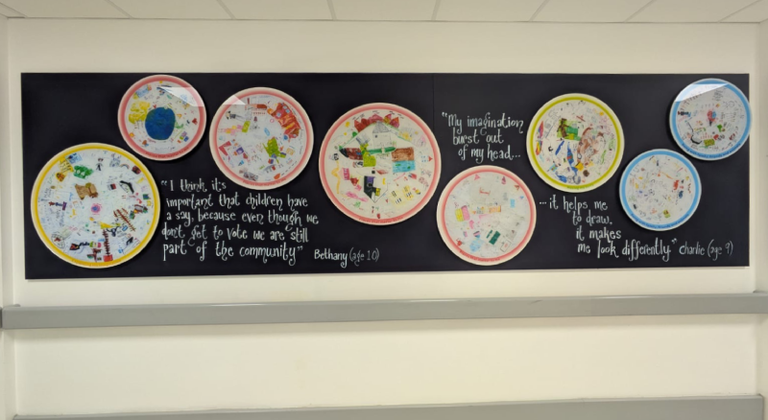 "I think its
important that children have
a say, because even though we
don't get to vote we are still
part of the community"
Bethany (age 10)
"My imagination
burst out
of my head...
...it helps me
to draw.
it makes
me look differently."
Charlie (age 7)